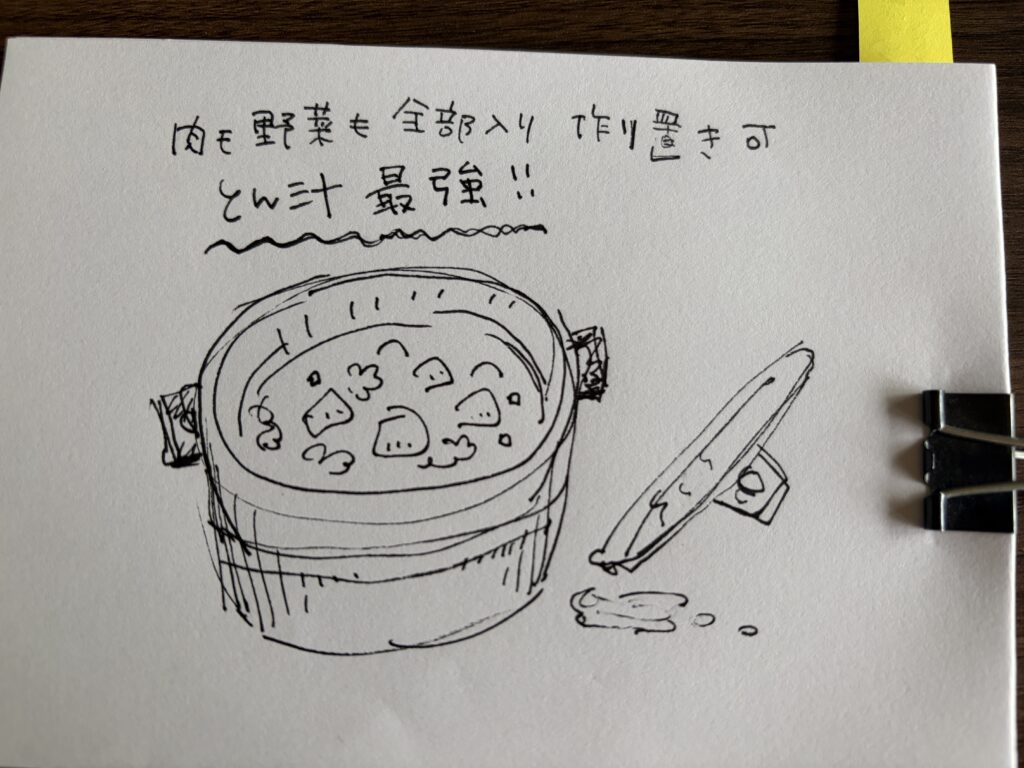 肉も野菜も全部入り 作り置き可
とん汁 最強!!